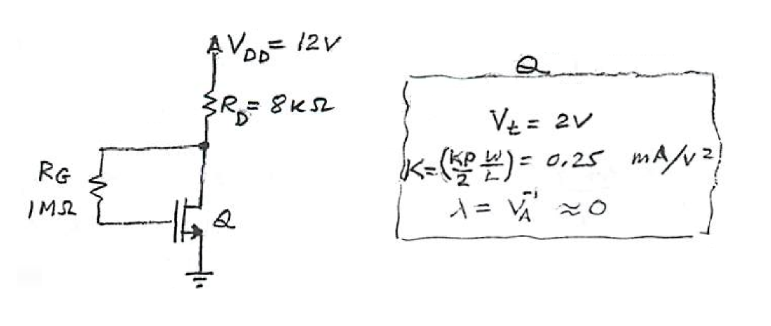 V_DD = 12V
R_D = 8KΩ
RG
1MΩ
Q
Q
V_t = 2V
K=(KP/2 W/L) = 0.25 mA/V²
λ = V_A⁻¹ ≈ 0